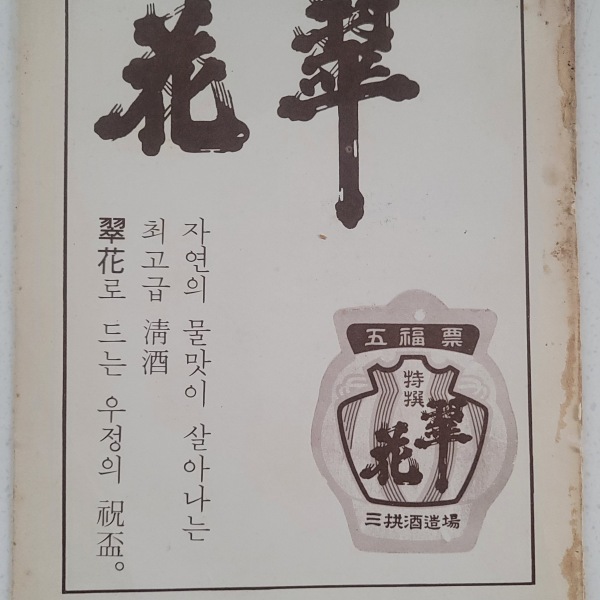 翠花
자연의 물맛이 살아나는
최고급 淸酒
翠花로 드는 우정의 祝盃。
五福票
特撰
翠花
三拱酒造場